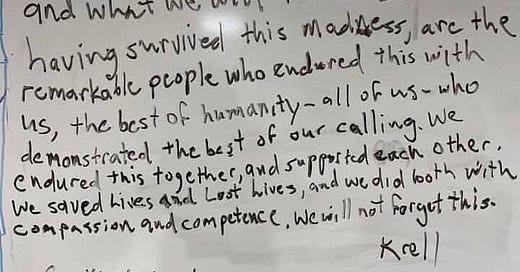 and what we will
having survived this madness, are the
remarkable people who endured this with
us, the best of humanity-all of us-who
demonstrated the best of our calling. We
endured this together, and supported each other.
We saved Lives and Lost lives, and we did both with
compassion and competence. We will not forget this.
Krell